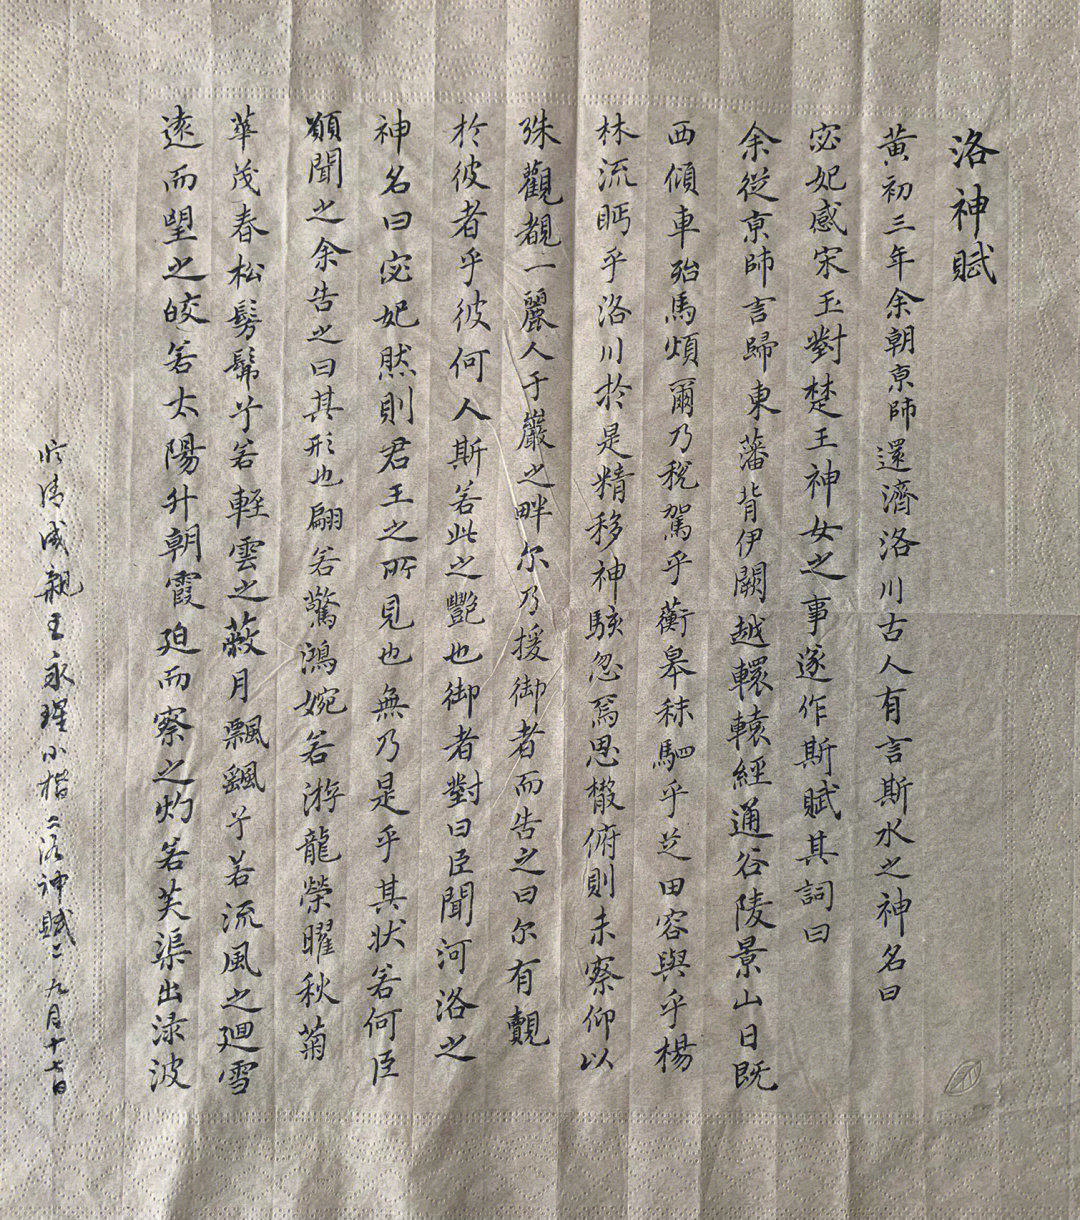 洛神賦
黃初三年余朝京師還濟洛川古人有言斯水之神名曰
宓妃感宋玉對楚王神女之事遂作斯賦其詞曰
余從京師言歸東藩背伊闕越轘轅經通谷陵景山日既
西傾車殆馬煩爾乃稅駕乎蘅皋秣駟乎芝田容與乎楊
林流眄乎洛川於是精移神駭忽焉思散俯則未察仰以
殊觀覩一麗人于巖之畔尔乃援御者而告之曰尔有覿
於彼者乎彼何人斯若此之艷也御者對曰臣聞河洛之
神名曰宓妃然則君王之所見也無乃是乎其状若何臣
願聞之余告之曰其形也翩若驚鴻婉若游龍榮曜秋菊
華茂春松髣髴兮若輕雲之蔽月飄颻兮若流風之迴雪
遠而望之皎若太陽升朝霞迫而察之灼若芙渠出淥波
临清成親王永瑆小楷 洛神賦 九月十七日